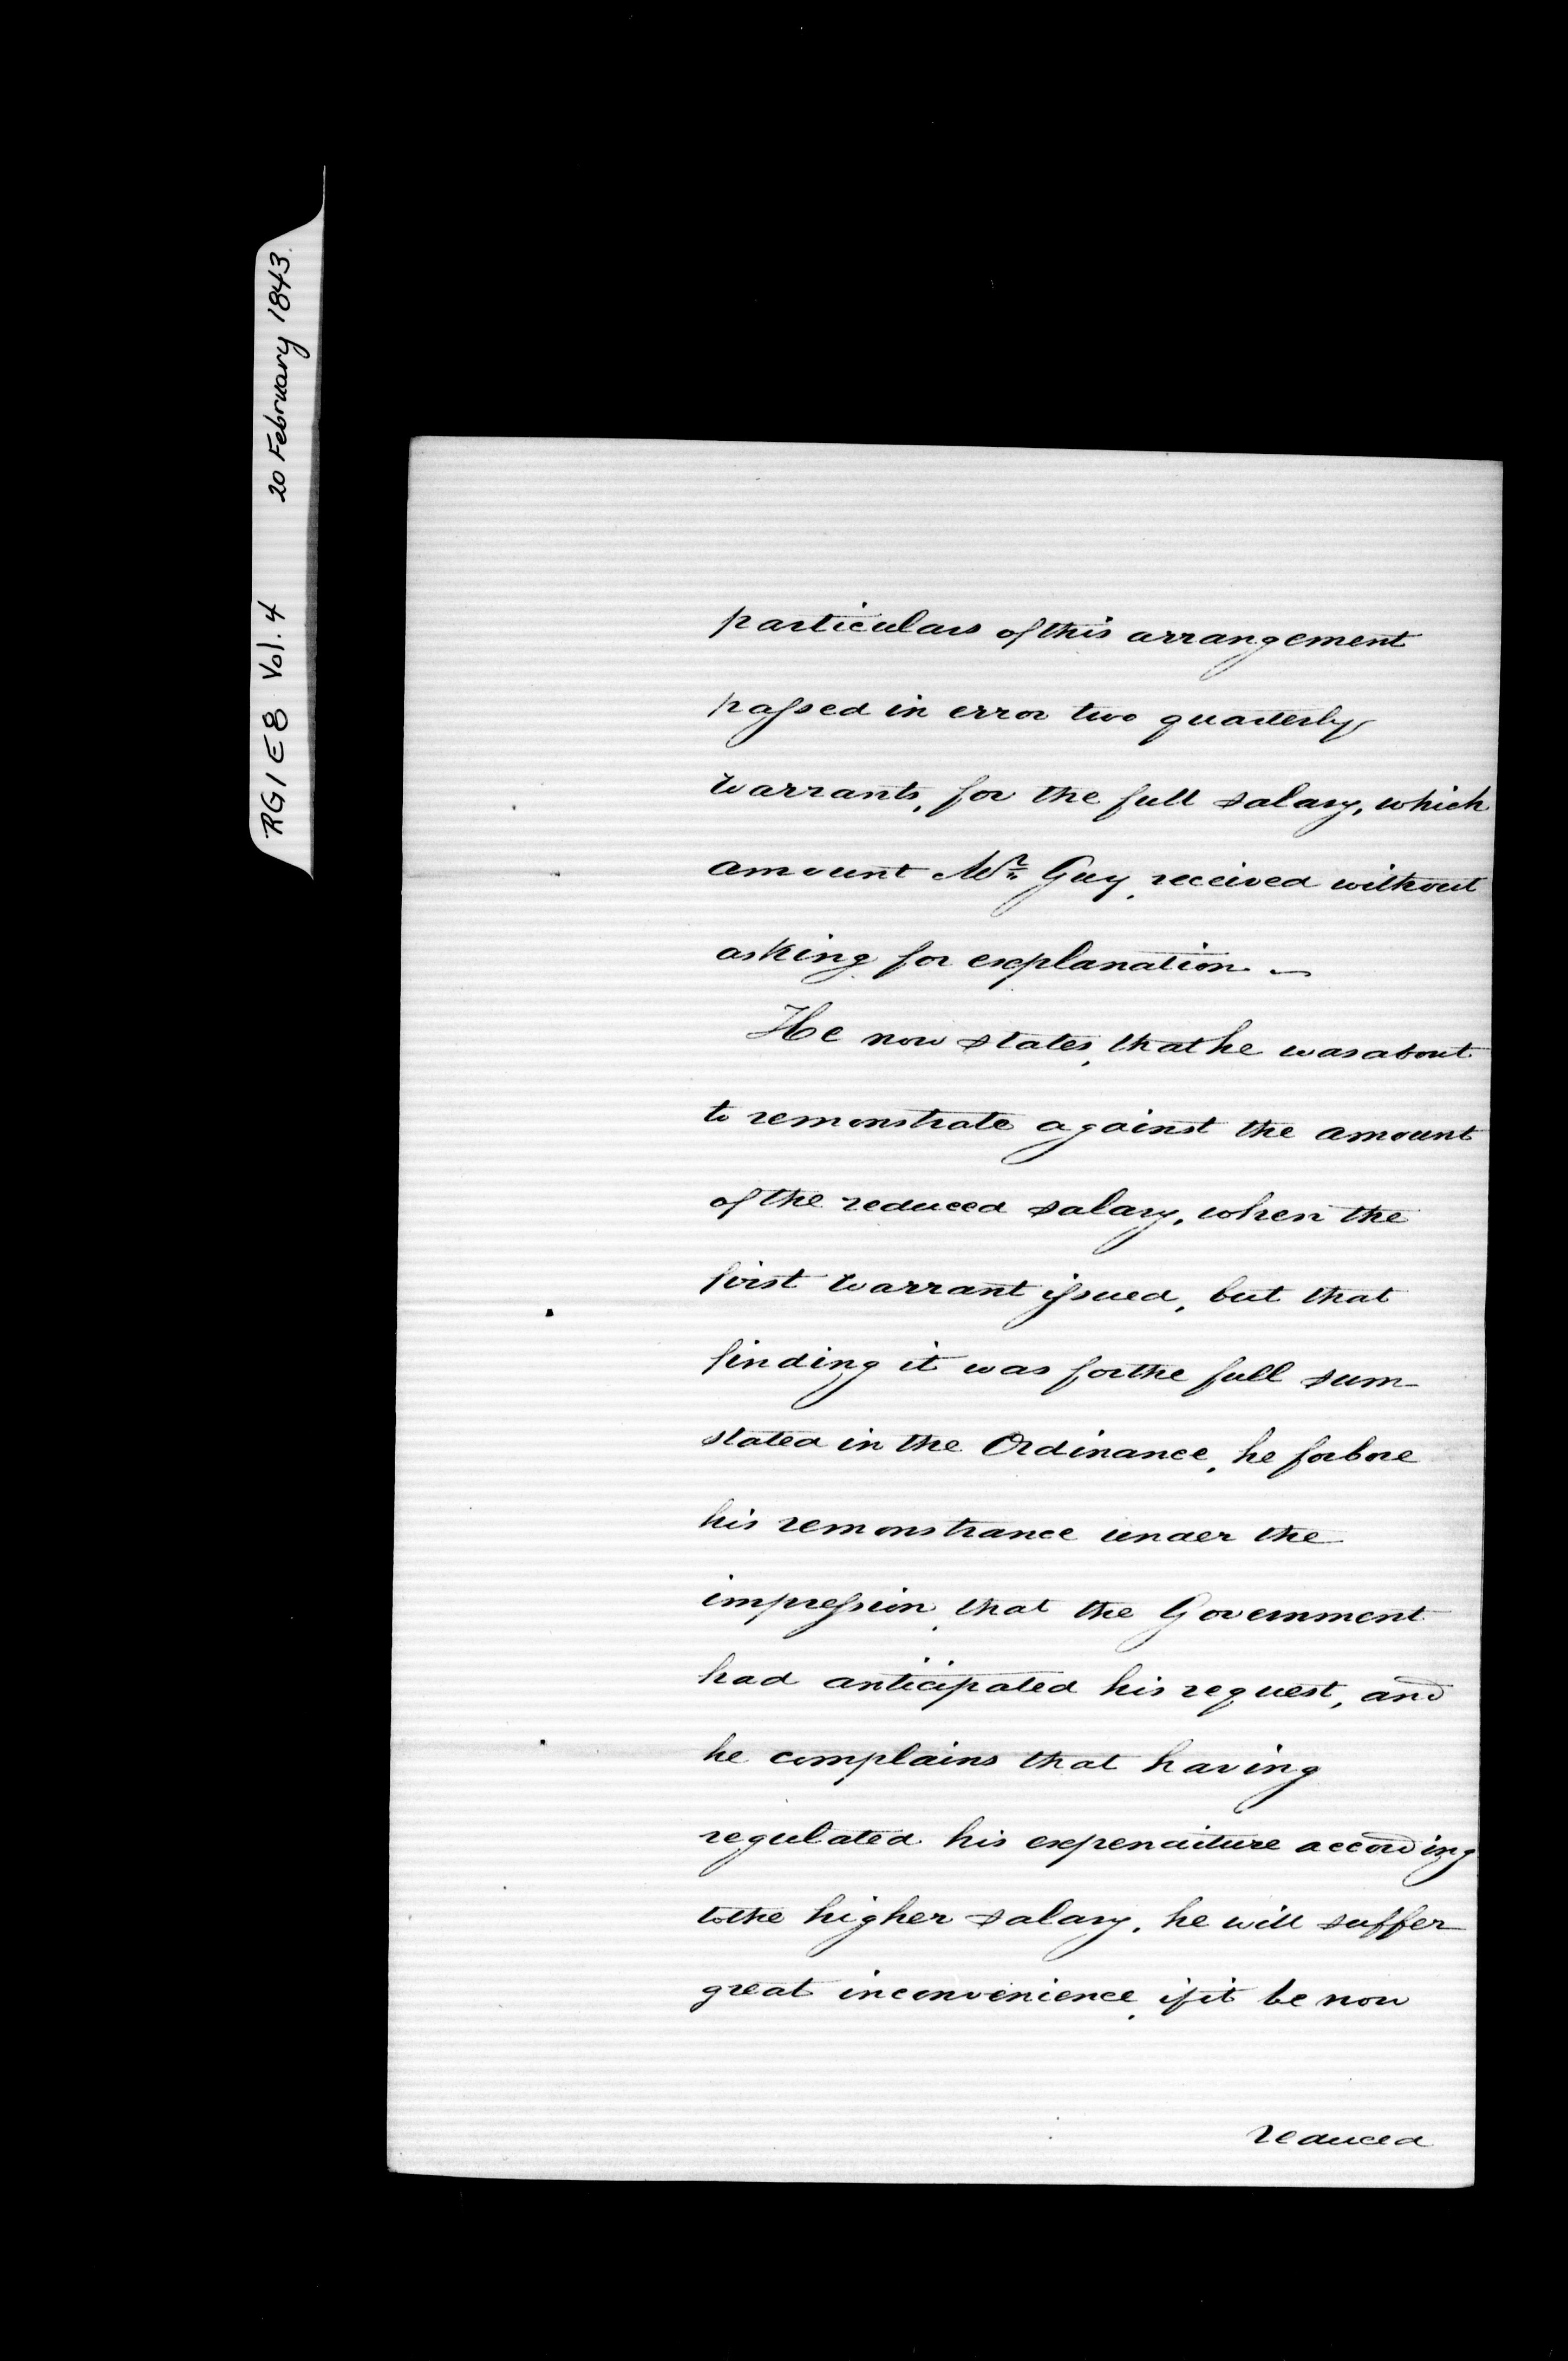 RG1 E8 Vol. 4 20 February 1843.
particulars of this arrangement
passed in error two quarterly
Warrants, for the full salary, which
amount Mr. Guy, received without
asking for explanation. —
He now states, that he was about
to remonstrate against the amount
of the reduced salary, when the
first Warrant issued, but that
finding it was for the full sum
stated in the Ordinance, he forbore
his remonstrance under the
impression, that the Government
had anticipated his request, and
he complains that having
regulated his expenditure according
to the higher salary, he will suffer
great inconvenience, if it be now
reduced